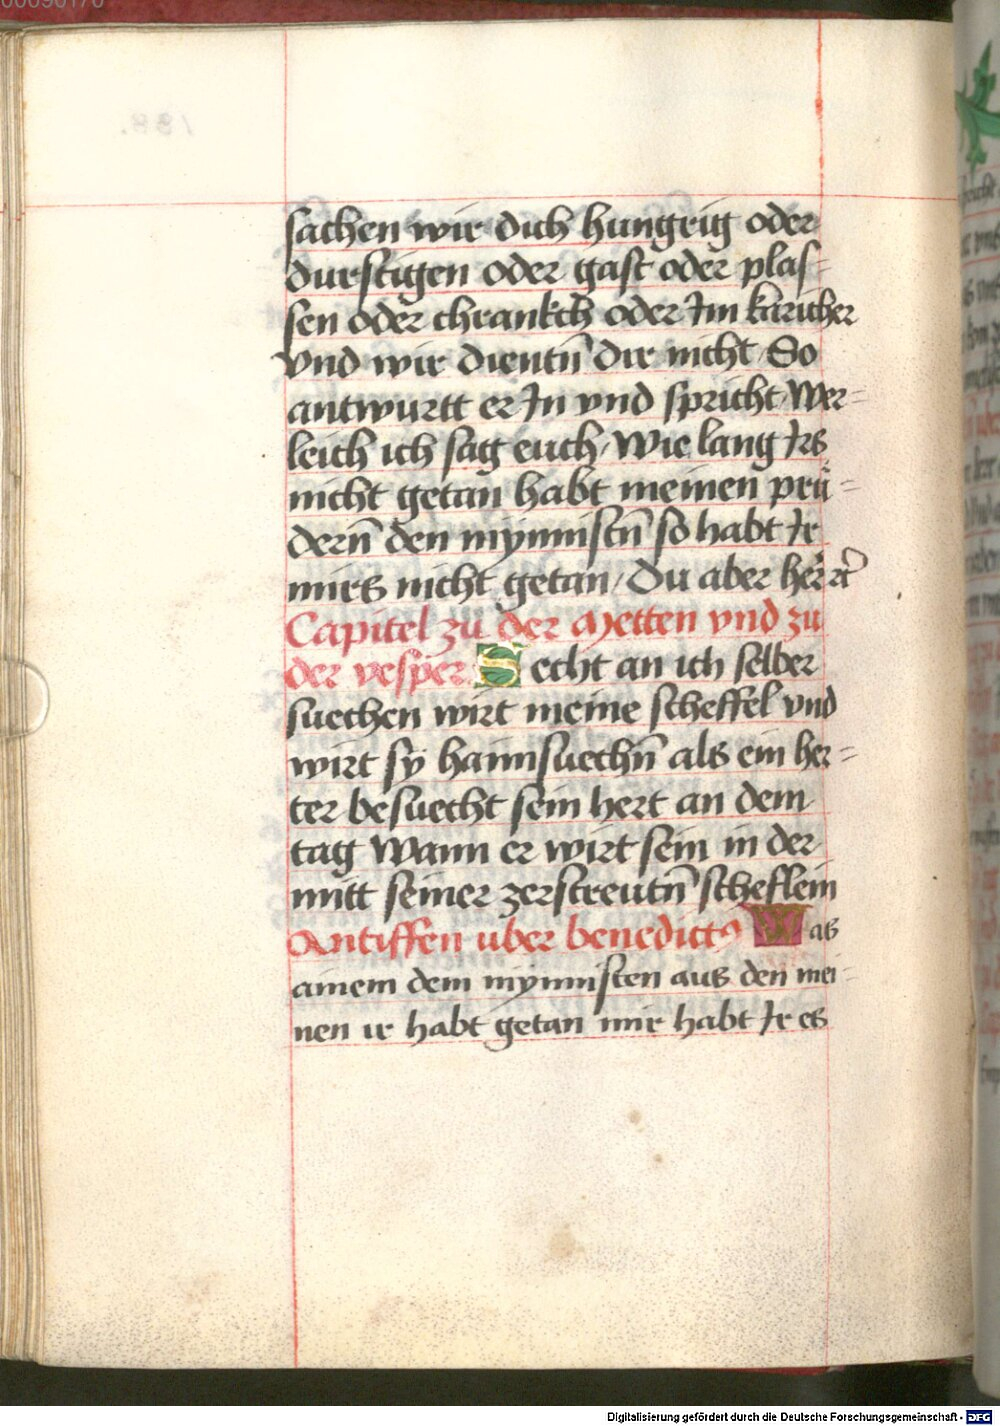 sachen wir dich hungrig oder
durstigen oder gast oder plas=
sen oder chrankch oder Im karicher
vnd wir dientn̄ dir nicht / So
antwurtt er In vnd spricht / Wer=
leich ich sag euch / Wie lang Irs
nicht getan habt meinen prü=
dern̄ den mynnistn̄ so habt Ir
mirs nicht getan / Du aber her̄ rc̄
Capitel zu der Metten vnd zu
der vesper Secht an ich selber
suechen wirt meine scheffel vnd
wirt sy haimsuechn̄ als ein her=
ter besuecht sein hert an dem
tag Wann er wirt sein in der
mitt seiner zerstreutn̄ scheflein
Antiffen uber benedictꝰ Was
ainem dem mynnisten aus den mei=
nen ir habt getan mir habt Ir es
188.
Digitalisierung gefördert durch die Deutsche Forschungsgemeinschaft - DFG